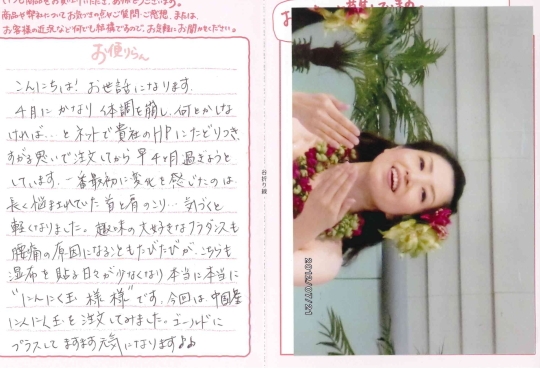 商品や弊社についてお気づきの点やご質問・ご感想、または、
お客様の近況など何でも結構ですので、お気軽にお聞かせください。
お便りらん
こんにちは! お世話になります。
4月に かなり 体調を崩し、何とかしな
ければ…と ネットで貴社のHPにたどりつき、
すがる思いで注文してから 早4ヶ月過ぎようと
しています。一番最初に変化を感じたのは
長く悩まされていた 首と肩のこり… 気づくと
軽くなりました。趣味の大好きなフラダンスも
腰痛の原因になることもたびたびが、こちらも
湿布を貼る日々が少なくなり 本当に本当に
"にんにく玉 様 様" です。今回は 中国産
にんにく玉を注文してみました。ゴールドに
プラスして ますます元気になります♪♪
谷折り線
2012/07/21